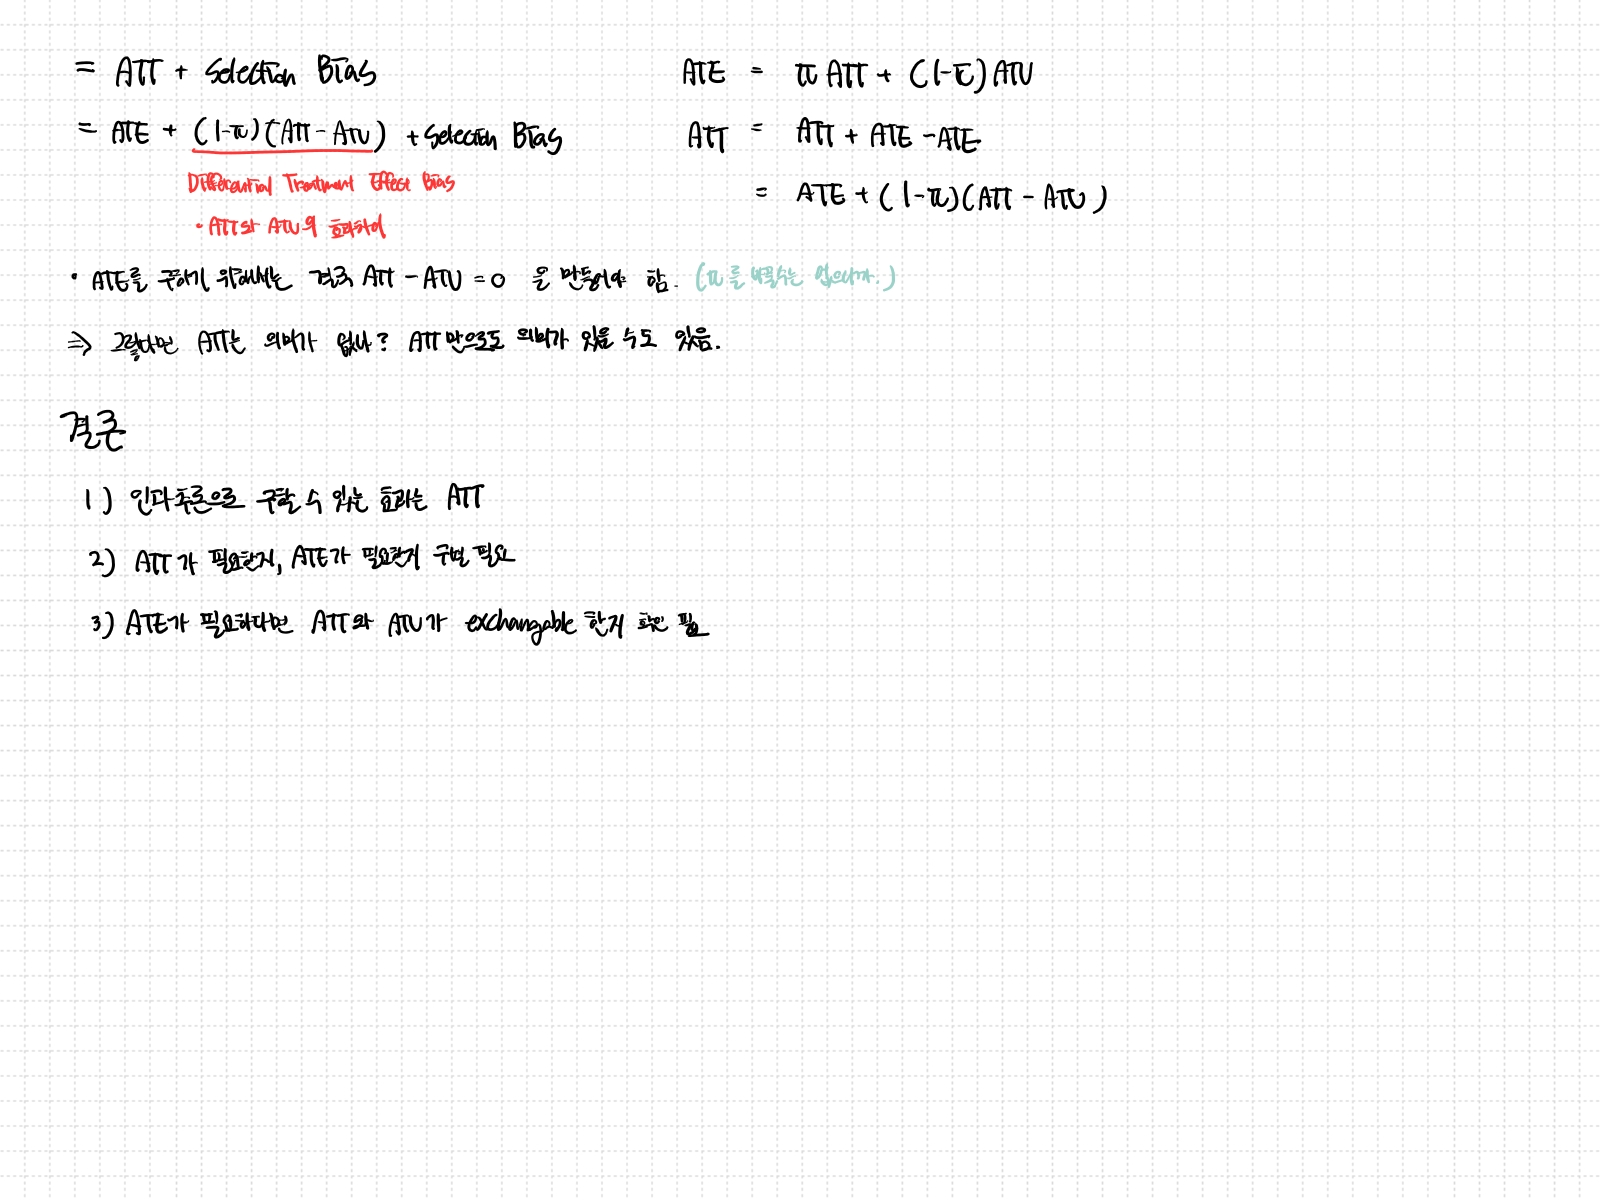 = ATT + Selection Bias
= ATE + (1-π)(ATT - ATU) + Selection Bias
Differential Treatment Effect Bias
• ATT와 ATU의 효과차이
ATE = π ATT + (1-π) ATU
ATT = ATT + ATE - ATE
= ATE + (1-π)(ATT - ATU)
• ATE를 구하기 위해서는 결국 ATT - ATU = 0 을 만들어야 함. (π를 바꿀수는 없으니까.)
⇒ 그렇다면 ATT는 의미가 없나? ATT만으로도 의미가 있을 수도 있음.
결론
1) 인과추론으로 구할 수 있는 효과는 ATT
2) ATT가 필요한지, ATE가 필요한지 구별 필요
3) ATE가 필요하다면 ATT와 ATU가 exchangable 한지 확인 필요